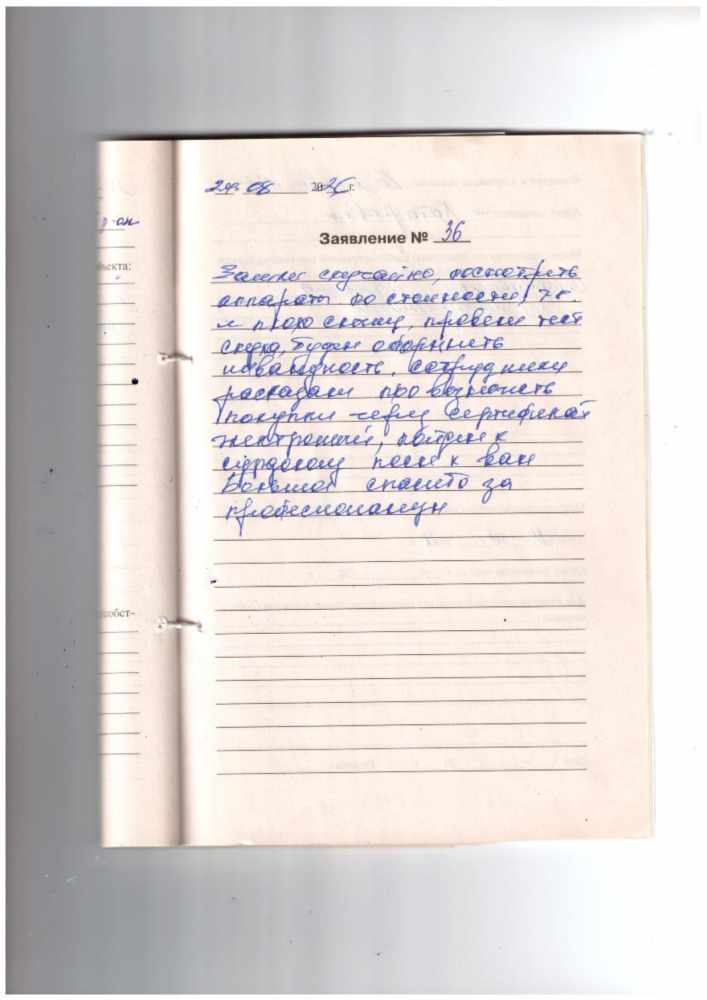 08 20 г.
р-он
Заявление № 36
ъекта:
Зашли случайно, посмотреть
аппараты по стоимости, т.к.
я плохо слышу, провели тест
слуха, будем оформлять
инвалидность. Сотрудники
рассказали про возможность
покупки через сертификат
электронный, пойдем к
сурдологу после к вам
Большое спасибо за
собст-